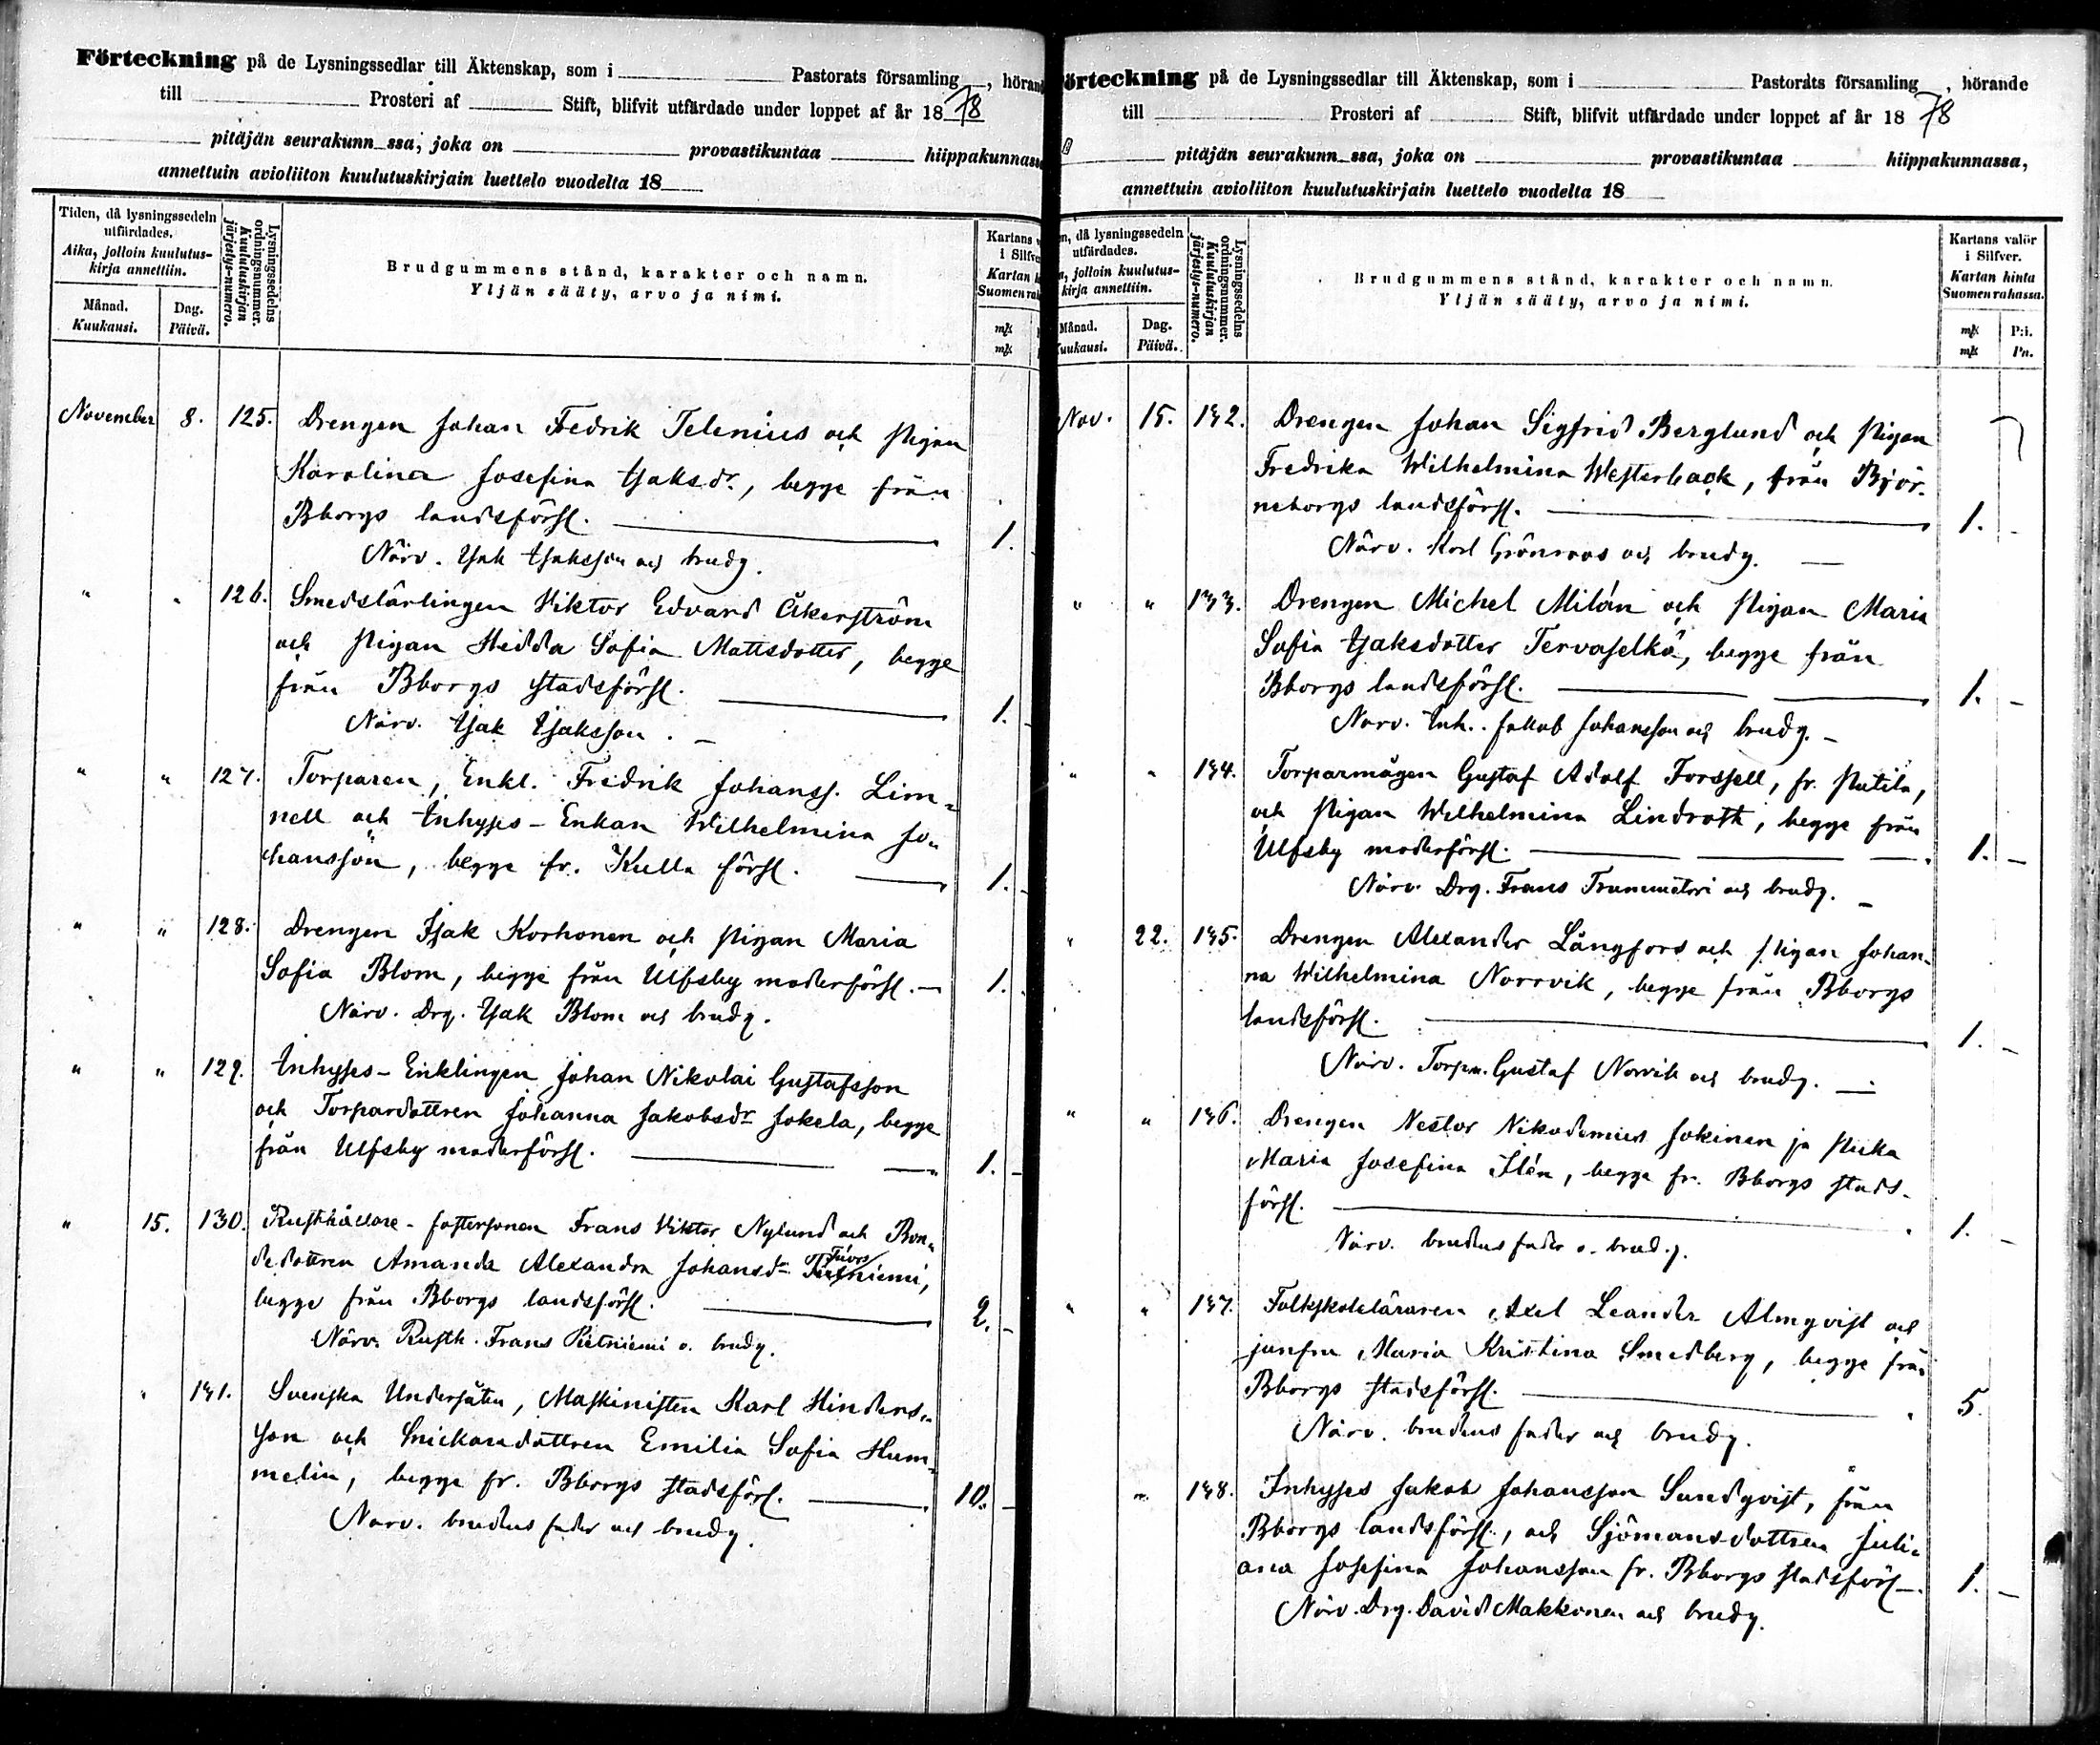 Förteckning på de Lysningssedlar till Äktenskap, som i Pastorats församling , hörand
till Prosteri af Stift, blifvit utfärdade under loppet af år 1878
pitäjän seurakunn ssa, joka on provastikuntaa hiippakunnass
annettuin avioliiton kuulutuskirjain luettelo vuodelta 18
Tiden, då lysningssedeln utfärdades.
Aika, jolloin kuulutus-kirja annettiin.
Månad. Kuukausi.
Dag. Päivä.
Lysningssedelns ordningsnummer.
Kuulutuskirjan järjestys-numero.
Brudgummens stånd, karakter och namn.
Yljän sääty, arvo ja nimi.
Kartans v
i Silfve
Kartan h
Suomen ra
mk
mk
November 8. 125. Drengen Johan Fedrik Telenius och Pigan
Karolina Josefina Isaksdr., begge från
Bborgs landsförsl. 1.
Närv. Isak Isaksson och brudg.
" " 126. Smedslärlingen Viktor Edvard Åkerström
och Pigan Hedda Sofia Mattsdotter, begge
från Bborgs stadsförsl. 1.
Närv. Isak Isaksson.
" " 127. Torparen, Enkl. Fredrik Johanss. Lim-
nell och Inhyses-Enkan Wilhelmina Jo-
hansson, begge fr. Kulla försl. 1.
" " 128. Drengen Isak Korhonen och Pigan Maria
Sofia Blom, begge från Ulfsby moderförsl. 1.
Närv. Drg. Isak Blom och brudg.
" " 129. Inhyses-Enklingen Johan Nikolai Gustafsson
och Torpardottren Johanna Jakobsdr Jokela, begge
från Ulfsby moderförsl. 1.
" 15. 130. Rusthållare-fostersonen Frans Viktor Nylund och Bon-
dedottren Amanda Alexandra Johansdr niemi,
begge från Bborgs landsförsl. 2.
Närv. Rusth. Frans Pietniemi o. brudg.
" 131. Svenska Undersåten, Maskinisten Karl Hinders-
son och Snickaredottren Emilia Sofia Hum-
melin, begge fr. Bborgs stadsförs. 10.
Närv. brudens fader och brudg.
örteckning på de Lysningssedlar till Äktenskap, som i Pastorats församling , hörande
till Prosteri af Stift, blifvit utfärdade under loppet af år 1878
pitäjän seurakunn ssa, joka on provastikuntaa hiippakunnassa,
annettuin avioliiton kuulutuskirjain luettelo vuodelta 18
n, då lysningssedeln utfärdades.
a, jolloin kuulutus-kirja annettiin.
Månad. uukausi.
Dag. Päivä.
Lysningssedelns ordningsnummer.
Kuulutuskirjan järjestys-numero.
Brudgummens stånd, karakter och namn.
Yljän sääty, arvo ja nimi.
Kartans valör
i Silfver.
Kartan hinta
Suomen rahassa.
mk P:i.
mk Pn.
Nov. 15. 132. Drengen Johan Sigfrid Berglund och Pigan
Fredrika Wilhelmina Westerback, från Björ-
neborgs landsförsl. 1.
Närv. Karl Grönroos och brudg.
" " 133. Drengen Michel Milán och Pigan Maria
Sofia Isaksdotter Tervaselkä, begge från
Bborgs landsförsl. 1.
Närv. Inh. Jakob Johansson och brudg.
" " 134. Torparmågen Gustaf Adolf Forssell, fr.
och Pigan Wilhelmina Lindroth, begge från
Ulfsby moderförsl. 1.
Närv. Drg. Frans och brudg.
" 22. 135. Drengen Alexander Långfors och Pigan Johan-
na Wilhelmina Norrvik, begge från Bborgs
landsförsl. 1.
Närv. Torpn. Gustaf Norrvik och brudg.
" " 136. Drengen Nestor Nikodemus Jokinen ja Piika
Maria Josefina Ilén, begge fr. Bborgs stads-
försl. 1.
Närv. brudens fader o. brudg.
" " 137. Folkskoleläraren Axel Leander Almqvist och
jungfru Maria Kristina Smedberg, begge från
Bborgs stadsförsl. 5.
Närv. brudens fader och brudg.
" 138. Inhyses Jakob Johansson Sundqvist, från
Bborgs landsförsl., och Sjömans-dottren Juli-
ana Josefina Johansson fr. Bborgs stadsförs. 1.
Närv. Drg. David Makkonen och brudg.